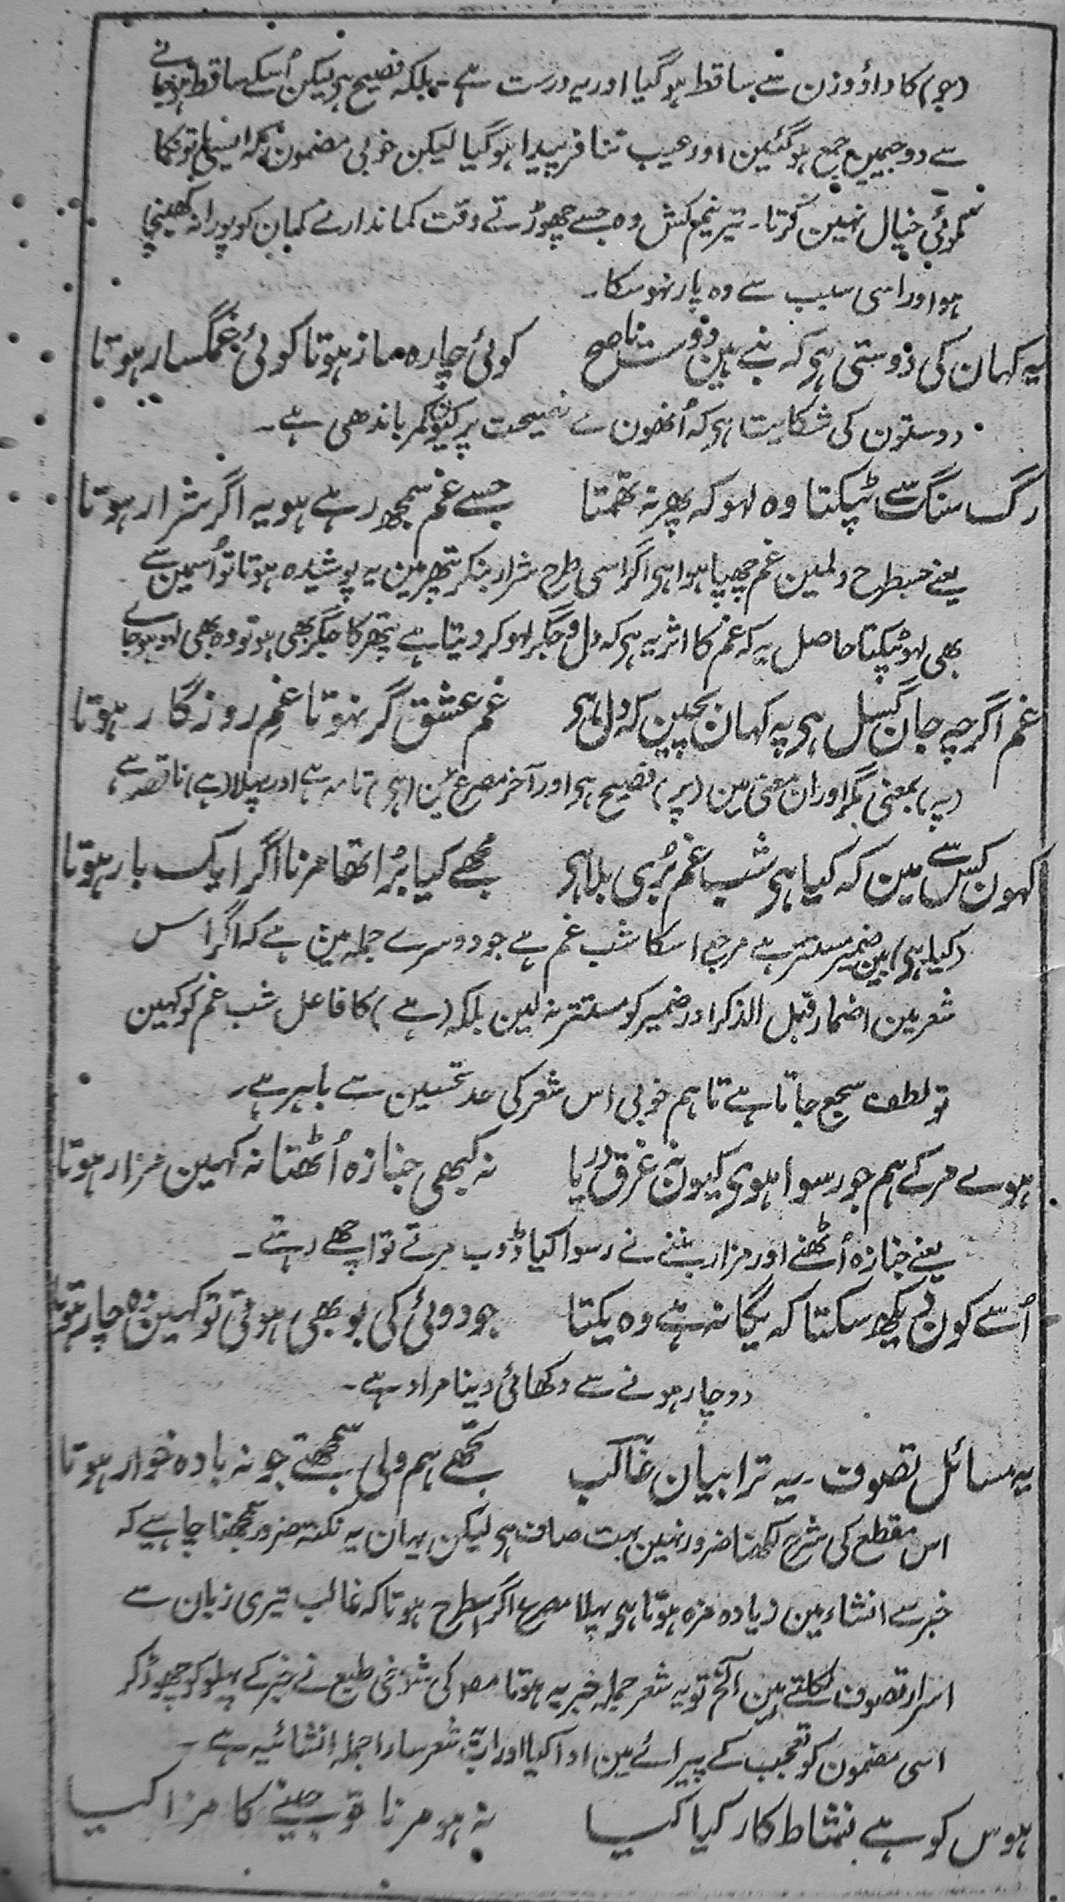 (جو) کا واؤ وزن سے ساقط ہو گیا اور یہ درست ہے ۔ بلکہ فصیح ہی لیکن اُسکے ساقط ہو جانے
سے دو جیمیں جمع ہو گئیں اور عیب تنافر پیدا ہو گیا لیکن خوبی مضمون کے
کوئی خیال نہین کرتا ۔ تیر نیم کش وہ جسے چھوڑتے وقت کماندار نے کمان کو پورا نہ کھینچا
ہو اور اسی سبب سے وہ پار نہو سکا ۔
یہ کہان کی دوستی ہی کہ بنے ہین دوست ناصح    کوئی چارہ ساز ہوتا کوئی غمگسار ہوتا
دوستون کی شکایت ہی کہ اُنھون نے نصیحت پر کیون کمر باندھی ہے ۔
رگ سنگ سے ٹپکتا وہ لہو کہ پھر نہ تھمتا    جسے غم سمجھ رہے ہو یہ اگر شرار ہوتا
یعنے جسطرح دلمین غم چھپا ہوا ہی اگر اسی طرح شرار بنکر پتھر مین یہ پوشیدہ ہوتا تو اُسمین سے
بھی لہو ٹپکتا حاصل یہ کہ غم کا اثر یہ ہی کہ دل و جگر لہو کر دیتا ہے پتھر کا جگر بھی ہو تو وہ بھی لہو ہو جاے
غم اگرچہ جان گسل ہی پہ کہان بچین کہ دل ہی    غم عشق گر نہوتا غم روزگار ہوتا
(پہ) بمعنی مگر اور ان معنی مین (پر) فصیح ہی اور آخر مصرع مین (ہی) تامہ ہے اور پہلا (ہے) ناقصہ ہے
کہون کس سے مین کہ کیا ہی شب غم بُری بلا ہی    مجھے کیا بُرا تھا مرنا اگر ایک بار ہوتا
(کیا ہی) مین ضمیر مستتر ہے مرجع اسکا شب غم ہے جو دوسرے جملہ مین ہے کہ اگر اس
شعر مین اضمار قبل الذکر اور ضمیر کو مستتر نہ لین بلکہ (ہے) کا فاعل شب غم کو کہین
تو لطف سجع جاتا ہے تاہم خوبی اس شعر کی حد تحسین سے باہر ہے ۔
ہوے مرکے ہم جو رسوا ہوی کیون نہ غرق دریا    نہ کبھی جنازہ اُٹھتا نہ کہین مزار ہوتا
یعنے جنازہ اُٹھنے اور مزار بننے نے رسوا کیا ڈوب مرتے تو اچھے رہتے ۔
اُسے کون دیکھ سکتا کہ یگانہ ہے وہ یکتا    جو دوئی کی بو بھی ہوتی تو کہین دو چار ہوتا
دو چار ہونے سے دکھائی دینا مراد ہے ۔
یہ مسائل تصوف ۔ یہ ترا بیان غالب    تجھے ہم ولی سمجھتے جو نہ بادہ خوار ہوتا
اس مقطع کی شرح لکھنا ضرور نہین بہت صاف ہی لیکن یہان یہ نکتہ ضرور سمجھنا چاہیے کہ
خبر سے انشاء مین زیادہ مزہ ہوتا ہی پہلا مصرع اگر اسطرح ہوتا کہ غالب تیری زبان سے
اسرار تصوف نکلتے ہین الخ تو یہ شعر جملہ خبریہ ہوتا مص کی شوخی طبع نے خبر کے پہلو کو چھوڑ کر
اسی مضمون کو تعجب کے پیرائے مین ادا کیا اور اب شعر سارا جملہ انشائیہ ہے ۔
ہوس کو ہے نشاط کار کیا کیا    نہ ہو مرنا تو جینے کا مزا کیا